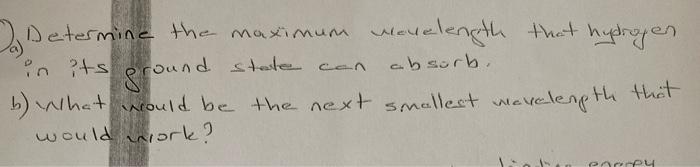 2) Determine the maximum wavelength that hydrogen
a) in its ground state can absorb.
b) What would be the next smallest wavelength that
would work?
energy